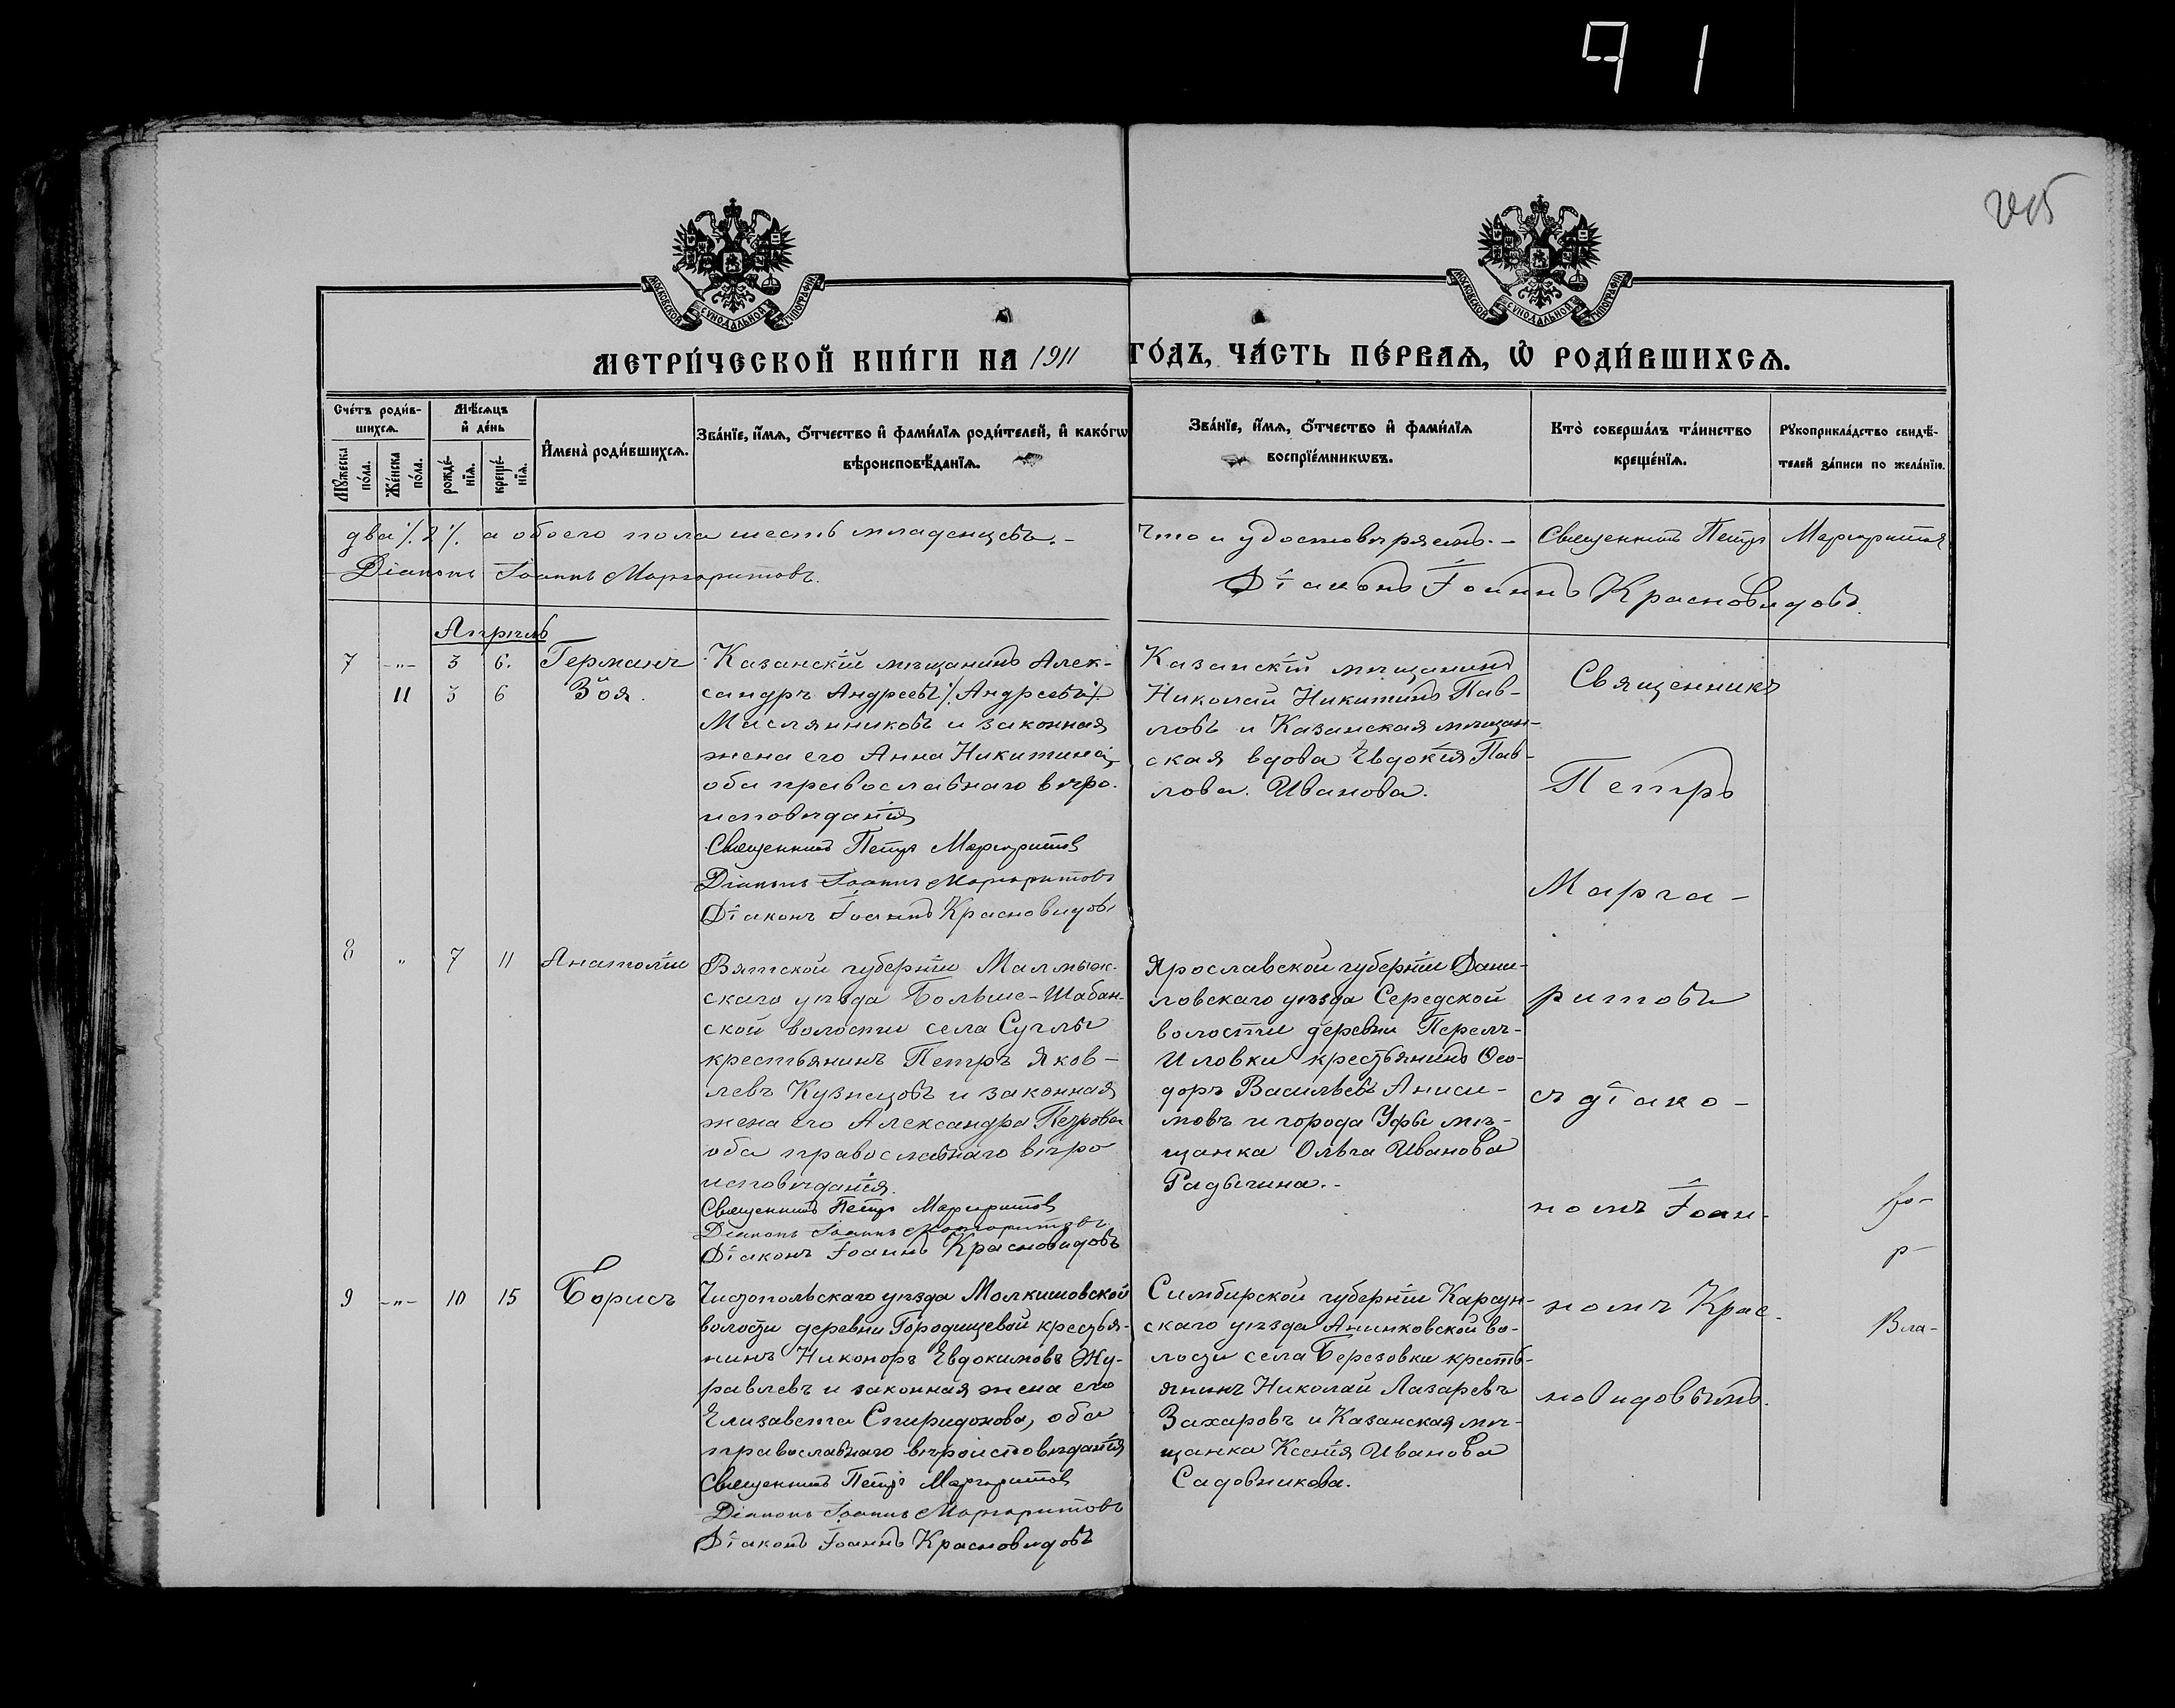 91
МОСКОВСКОЙ СѴНОДАЛЬНОЙ ТИПОГРАФІИ
МОСКОВСКОЙ СѴНОДАЛЬНОЙ ТИПОГРАФІИ
МЕТРИ́ЧЕСКОЙ КНИ́ГИ НА 1911 ГО́ДЪ, ЧА́СТЬ ПЕ́РВАѦ, Ѡ҆ РОДИ́ВШИХСѦ.
Сче́тъ роди́в-
шихсѧ.
Мꙋ́жеска по́ла.
Же́нска по́ла.
Мѣ́сѧцъ
и҆ де́нь
рожде́-
нїѧ.
креще́-
нїѧ.
И҆мена̀ роди́вшихсѧ.
Зва́нїе, и҆́мѧ, ѻ҆́тчество и҆ фами́лїѧ роди́телей, и҆ како́гѡ
вѣроисповѣ́данїѧ.
Зва́нїе, и҆́мѧ, ѻ҆́тчество и҆ фами́лїѧ
воспрїе́мникѡвъ.
Кто̀ соверша́лъ та́инство
креще́нїѧ.
Рꙋкоприкла́дство свидѣ́-
телей за́писи по жела́нїю.
два ./. 2 ./. а обоего пола шесть младенцевъ. –
Діаконъ Іоаннъ Маргаритовъ.
Что и удостовѣряемъ. – Священникъ Петръ Маргаритовъ
Діаконъ Іоаннъ Красновидовъ.
Апрѣль
7 -„- 3 6. Германъ
11 3 6 Зоя.
Казанскій мѣщанинъ Алек-
сандръ Андреевъ ./. Андреевъ ./.
Маслянниковъ и законная
жена его Анна Никитина,
оба православнаго вѣро-
исповѣданія
Священникъ Петръ Маргаритовъ
Діаконъ Іоаннъ Маргаритовъ
Діаконъ Іоаннъ Красновидовъ
Казанскій мѣщанинъ
Николай Никитинъ Пав-
ловъ и Казанская мѣщан-
ская вдова Евдокія Пав-
лова Иванова.
Священникъ
Петръ
Марга-
8 „ 7 11 Анатолій
Вятской губерніи Малмыж-
скаго уѣзда Больше-Шабан-
ской волости села Суглы
крестьянинъ Петръ Яков-
левъ Кузнецовъ и законная
жена его Александра Петрова
оба православнаго вѣро
исповѣданія.
Священникъ Петръ Маргаритовъ
Діаконъ Іоаннъ Маргаритовъ
Діаконъ Іоаннъ Красновидовъ
Ярославской губерніи Дани-
ловскаго уѣзда Середской
волости деревни
крестьянинъ Ѳео-
доръ Васильевъ Аниси-
мовъ и города Уфы мѣ-
щанка Ольга Иванова
Радыгина. –
ритовъ
съ діако-
номъ Іоан-
9 -„- 10 15 Борисъ
Чистопольскаго уѣзда Толкишовской
волости деревни Городищевой крестья-
нинъ Никоноръ Евдокимовъ Жу-
равлевъ и законная жена его
Елизавета Спиридонова, оба
православнаго вѣроисповѣданія
Священникъ Петръ Маргаритовъ
Діаконъ Іоаннъ Маргаритовъ
Діаконъ Іоаннъ Красновидовъ
Симбирской губерніи Карсун-
скаго уѣзда Анинковской во-
лости села Березовки кресть-
янинъ Николай Лазаревъ
Захаровъ и Казанская мѣ-
щанка Ксенія Иванова
Садовникова.
номъ Крас-
новидовымъ.
р-
Вла-